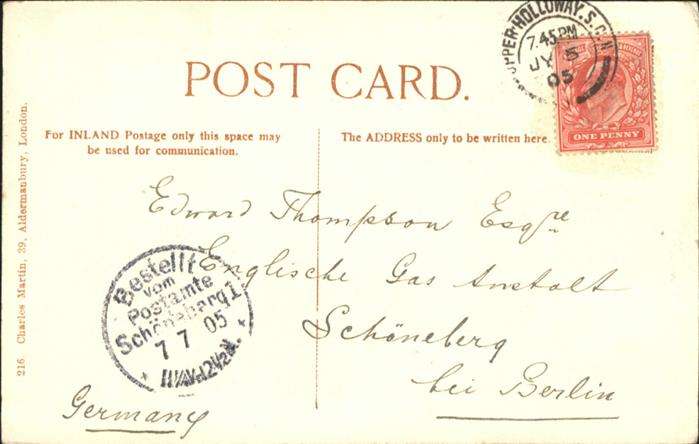 UPPER-HOLLOWAY. S.O.
7.45 PM
JY 5
05
POST CARD.
ONE PENNY
For INLAND Postage only this space may
be used for communication.
The ADDRESS only to be written here.
216 Charles Martin, 39, Aldermanbury, London.
Edward Thompson Esqre
Englische Gas Anstalt
Schöneberg
bei Berlin
Germany
Bestellt
vom
Postamte
Schöneberg 1
7 7 05